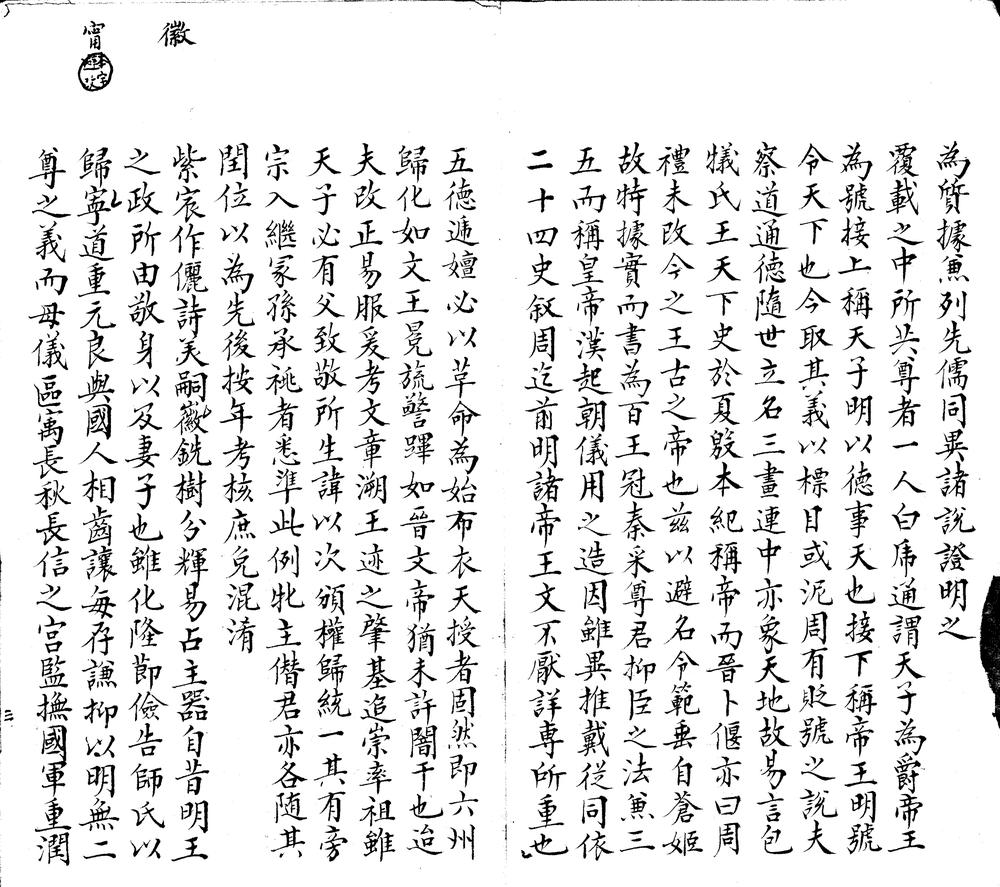 為質據兼列先儒同異諸說證明之
覆載之中所共尊者一人白虎通謂天子為爵帝王
為號接上稱天子明以德事天也接下稱帝王明號
令天下也今取其義以標目或泥周有貶號之說夫
察道通德隨世立名三畫連中亦象天地故易言包
犧氏王天下史於夏殷本紀稱帝而晉卜偃亦曰周
禮未改今之王古之帝也茲以避名令範垂自蒼姬
故特據實而書為百王冠秦采尊君抑臣之法兼三
五而稱皇帝漢起朝儀用之造因雖異推戴從同依
二十四史叙周迄前明諸帝王文不厭詳專所重也
五德遞嬗必以革命為始布衣天授者固然即六州
歸化如文王冕旒警蹕如晉文帝猶未許闇干也迨
夫改正易服爰考文章溯王迹之肇基追崇率祖雖
天子必有父致敬所生諱以次頒權歸統一其有旁
宗入繼冢孫承祧者悉準此例牝主僭君亦各隨其
閏位以為先後按年考核庶免混淆
紫宸作儷詩美嗣徽銑樹分輝易占主器自昔明王
之政所由敬身以及妻子也雖化隆節儉告師氏以
歸寧道重元良與國人相齒讓每存謙抑以明無二
尊之義而母儀區寓長秋長信之宮監撫國軍重潤
徽
甯